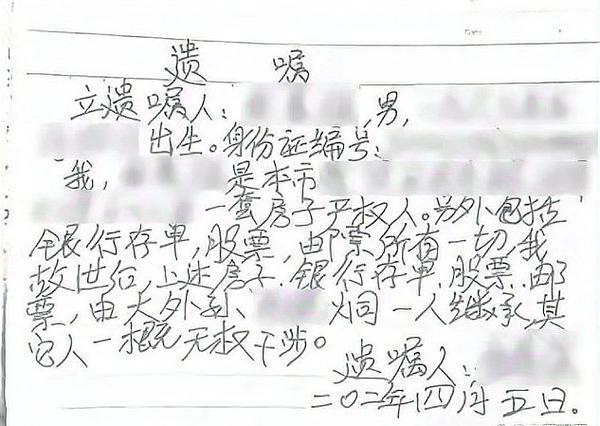 遗嘱
立遗嘱人: 男,
出生。身份证编号:
我, 是本市
一套房子产权人。另外包括
银行存单,股票,邮票所有一切,我
故世后,上述房子.银行存单.股票.邮
票,由大外孙 烔一人继承,其
它人一概无权干涉。
遗嘱人:
二〇二年四月五日。